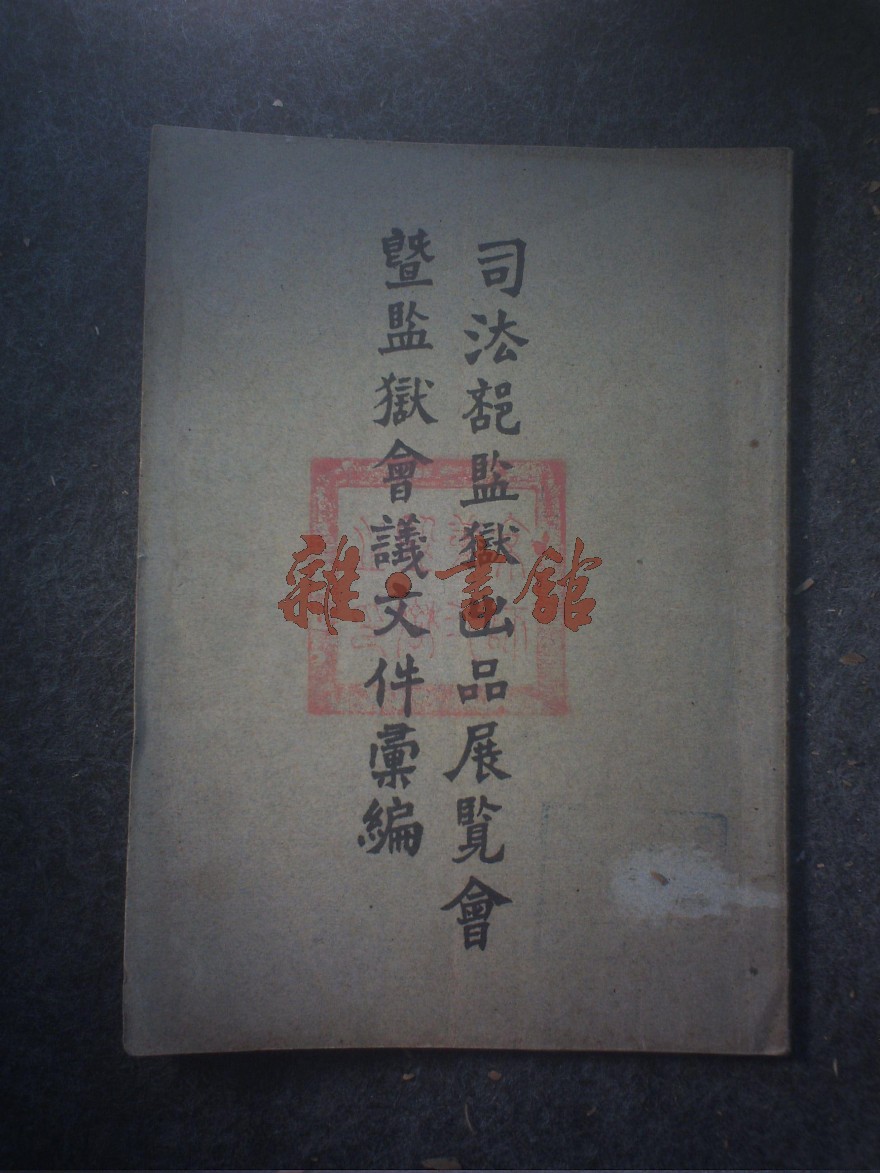 司法部監獄出品展覽會
暨監獄會議文件彙編
雜·書館